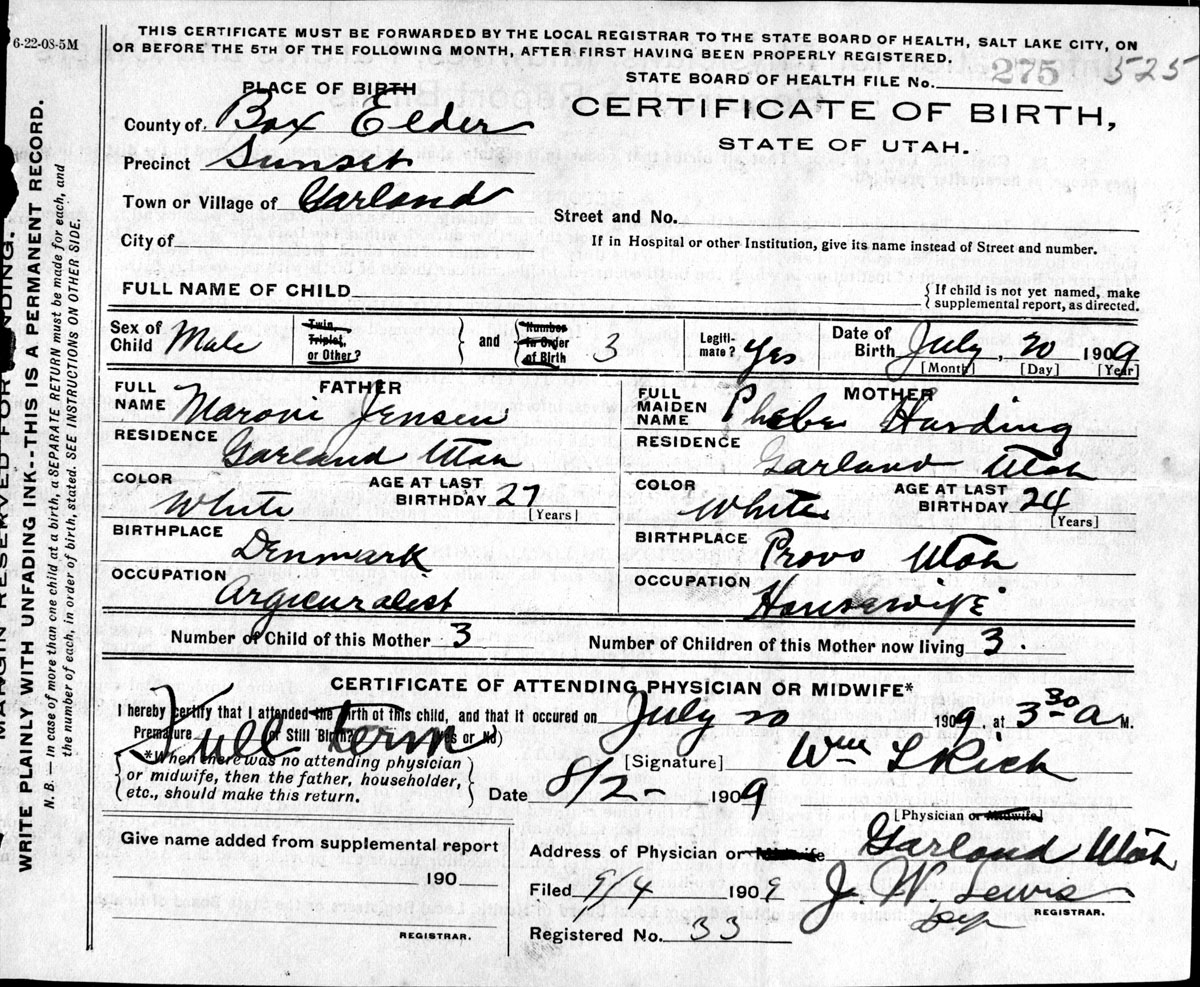 6-22-08-5M
THIS CERTIFICATE MUST BE FORWARDED BY THE LOCAL REGISTRAR TO THE STATE BOARD OF HEALTH, SALT LAKE CITY, ON
OR BEFORE THE 5TH OF THE FOLLOWING MONTH, AFTER FIRST HAVING BEEN PROPERLY REGISTERED.
STATE BOARD OF HEALTH FILE No. 275 525
PLACE OF BIRTH
CERTIFICATE OF BIRTH,
STATE OF UTAH.
County of. Box Elder
Precinct Sunset
Town or Village of Garland
Street and No.
City of
If in Hospital or other Institution, give its name instead of Street and number.
FULL NAME OF CHILD
{If child is not yet named, make
supplemental report, as directed.
Sex of Child Male
Twin, Triplet, or Other?
and
Number in Order of Birth 3
Legiti-mate? Yes
Date of Birth July, 20 1909
[Month] [Day] [Year]
FATHER
FULL NAME Maroni Jensen
RESIDENCE Garland Utah
COLOR White
AGE AT LAST BIRTHDAY 27
[Years]
BIRTHPLACE Denmark
OCCUPATION Argicuralest
MOTHER
FULL MAIDEN NAME Phebe Harding
RESIDENCE Garland Utah
COLOR White
AGE AT LAST BIRTHDAY 24
[Years]
BIRTHPLACE Provo Utah
OCCUPATION Housewife
Number of Child of this Mother 3
Number of Children of this Mother now living 3.
CERTIFICATE OF ATTENDING PHYSICIAN OR MIDWIFE*.
I hereby certify that I attended the birth of this child, and that it occured on July 20 1909, at 3 30 a M.
Premature or Still Birth? (Yes or No)
Full Term
*When there was no attending physician
or midwife, then the father, householder,
etc., should make this return.
[Signature] Wm L Rich
Date 8/2- 1909
[Physician or Midwife]
Give name added from supplemental report
190
REGISTRAR.
Address of Physician or Midwife Garland Utah
Filed 9/4 1909 J. W. Lewis
Dep REGISTRAR.
Registered No. 33
MARGIN RESERVED FOR BINDING.
WRITE PLAINLY WITH UNFADING INK--THIS IS A PERMANENT RECORD.
N. B.—In case of more than one child at a birth, a SEPARATE RETURN must be made for each, and
the number of each, in order of birth, stated. SEE INSTRUCTIONS ON OTHER SIDE.